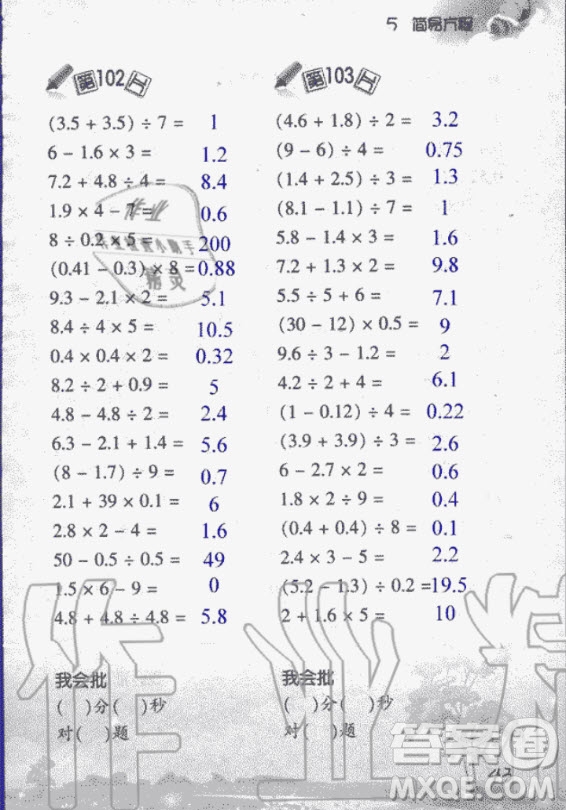 5 简易方程
第102工
(3.5 + 3.5) ÷ 7 = 1
6 - 1.6 × 3 = 1.2
7.2 + 4.8 ÷ 4 = 8.4
1.9 × 4 - 7 = 0.6
8 ÷ 0.2 × 5 = 200
(0.41 - 0.3) × 8 = 0.88
9.3 - 2.1 × 2 = 5.1
8.4 ÷ 4 × 5 = 10.5
0.4 × 0.4 × 2 = 0.32
8.2 ÷ 2 + 0.9 = 5
4.8 - 4.8 ÷ 2 = 2.4
6.3 - 2.1 + 1.4 = 5.6
(8 - 1.7) ÷ 9 = 0.7
2.1 + 39 × 0.1 = 6
2.8 × 2 - 4 = 1.6
50 - 0.5 ÷ 0.5 = 49
1.5 × 6 - 9 = 0
4.8 + 4.8 ÷ 4.8 = 5.8
我会批
( )分( )秒
对( )题
第103工
(4.6 + 1.8) ÷ 2 = 3.2
(9 - 6) ÷ 4 = 0.75
(1.4 + 2.5) ÷ 3 = 1.3
(8.1 - 1.1) ÷ 7 = 1
5.8 - 1.4 × 3 = 1.6
7.2 + 1.3 × 2 = 9.8
5.5 ÷ 5 + 6 = 7.1
(30 - 12) × 0.5 = 9
9.6 ÷ 3 - 1.2 = 2
4.2 ÷ 2 + 4 = 6.1
(1 - 0.12) ÷ 4 = 0.22
(3.9 + 3.9) ÷ 3 = 2.6
6 - 2.7 × 2 = 0.6
1.8 × 2 ÷ 9 = 0.4
(0.4 + 0.4) ÷ 8 = 0.1
2.4 × 3 - 5 = 2.2
(5.2 - 1.3) ÷ 0.2 = 19.5
2 + 1.6 × 5 = 10
我会批
( )分( )秒
对( )题
作业精
答案圈
MXQE.COM